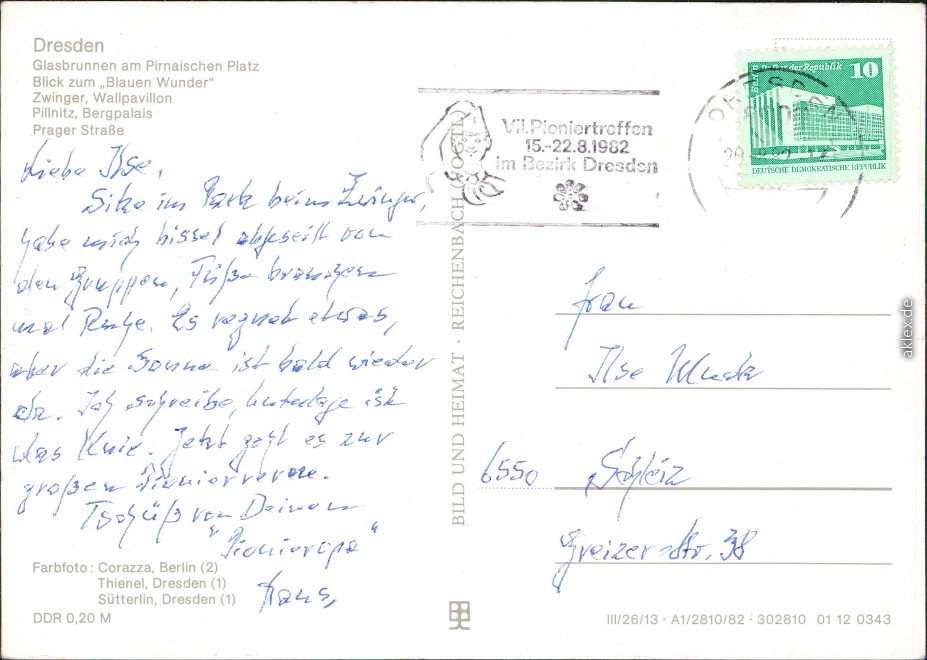 Dresden
Glasbrunnen am Pirnaischen Platz
Blick zum „Blauen Wunder“
Zwinger, Wallpavillon
Pillnitz, Bergpalais
Prager Straße
Liebe Ilse,
Sitze im Park beim Zwinger,
habe mich bissel abgeseilt von
den Gruppen, Füße brauchen
mal Ruhe. Es regnet etwas,
aber die Sonne ist bald wieder
da. Ich schreibe, Unterlage ist
das Knie. Jetzt geht es zur
großen Pionierrevue.
Tschüß von Deinem
"Pionieropa"
Hans,
Farbfoto: Corazza, Berlin (2)
Thienel, Dresden (1)
Sütterlin, Dresden (1)
DDR 0,20 M
BILD UND HEIMAT · REICHENBACH (VOGTL)
VII. Pioniertreffen
15.-22.8.1982
im Bezirk Dresden
DRESDEN
10
DEUTSCHE DEMOKRATISCHE REPUBLIK
Frau
Ilse
6550 Schleiz
Greizer Str. 38
III/26/13 · A1/2810/82 · 302810 01 12 0343
aklex.de